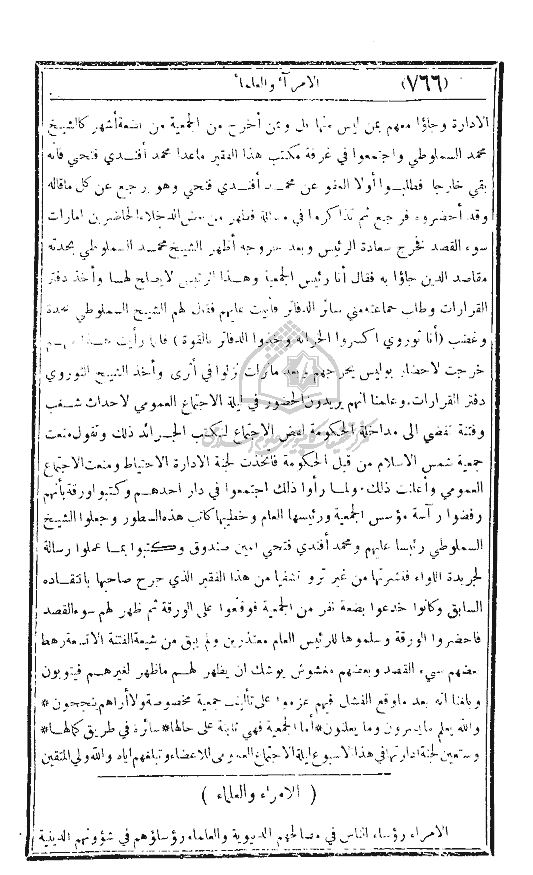 (٧٦٦) الامرآء والعلماء
الادارة وجاؤا معهم بمن ليس منها بل وبمن أخرج من الجمعية من بضعة أشهر كالشيخ
محمد السملوطي واجتمعوا في غرفة مكتب هذا الفقير ماعدا محمد أفندي فتحي فانه
بقي خارجا فطلبوا أولا العفو عن محمد أفندي فتحي وهو يرجع عن كل ماقاله
وقد أحضروه فرجع ثم تذاكروا في مسألة فظهر من بعض الدخلاء الحاضرين امارات
سوء القصد فخرج سعادة الرئيس وبعد خروجه أظهر الشيخ محمد السملوطي بحدته
مقاصد الذين جاؤا به فقال أنا رئيس الجمعية وهذا الرئيس لايصلح لها وأخذ دفتر
القرارات وطلب جماعته مني سائر الدفاتر فأبيت عليهم فقال لهم الشيخ السملوطي بحدة
وغضب (أنا توروي اكسروا الخزانة وخذوا الدفاتر بالقوة) فلما رأيت منهم
خرجت لاحضار بوليس يخرجهم وبعد مانزلت نزلوا في أثري وأخذ الشيخ التوروي
دفتر القرارات. وعلمنا انهم يريدون الحضور في ليلة الاجتماع العمومي لاحداث شغب
وفتنة تفضي الى مداخلة الحكومة لفض الاجتماع ليكتب الجرائد ذلك وتقول منعت
جمعية شمس الاسلام من قبل الحكومة فاتخذت لجنة الادارة الاحتياط ومنعت الاجتماع
العمومي وأعلنت ذلك. ولما رأوا ذلك اجتمعوا في دار احدهم وكتبوا ورقة بأنهم
رفضوا رآسة مؤسس الجمعية ورئيسها العام وخطيبها كاتب هذه السطور وجعلوا الشيخ
السملوطي رئيسا عليهم ومحمد أفندي فتحي امين صندوق وكتبوا بما عملوا رسالة
لجريدة اللواء فنشرتها من غير ترو تشفيا من هذا الفقير الذي جرح صاحبها بانتقاده
السابق وكانوا خدعوا بضعة نفر من الجمعية فوقعوا على الورقة ثم ظهر لهم سوء القصد
فاحضروا الورقة وسلموها للرئيس العام معتذرين ولم يبق من شيعة الفتنة الا تسعة رهط
بعضهم سيء القصد وبعضهم مغشوش يوشك ان يظهر لهم ماظهر لغيرهم فيتوبون
وبلغنا انه بعد ماوقع الفشل فيهم عزموا على تأليف جمعية مخصوصة ولا أراهم ينجحون *
والله يعلم مايسرون وما يعلنون * أما الجمعية فهي ثابتة على حالها * سائرة في طريق كمالها *
وستعين لجنة ادارتها في هذا الاسبوع ليلة الاجتماع العمومي للاعضاء وتبلغهم اياه والله ولي المتقين
( الامراء والعلماء )
الامراء رؤساء الناس في مصالحهم الدنيوية والعلماء رؤساؤهم في شؤونهم الدينية